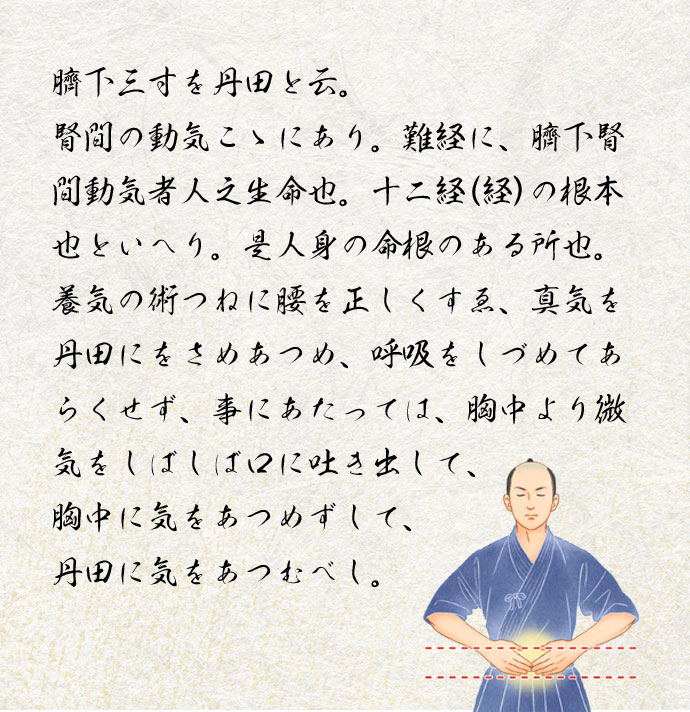 臍下三寸を丹田と云。
腎間の動気こゝにあり。難経に、臍下腎
間動気者人之生命也。十二経(経)の根本
也といへり。是人身の命根のある所也。
養気の術つねに腰を正しくすゑ、真気を
丹田にをさめあつめ、呼吸をしづめてあ
らくせず、事にあたっては、胸中より微
気をしばしば口に吐き出して、
胸中に気をあつめずして、
丹田に気をあつむべし。